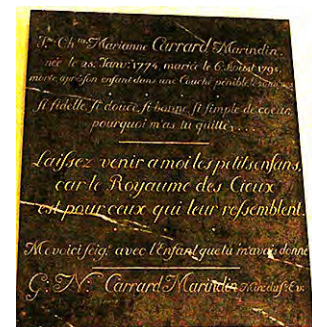 Marianne Carrard Marindin
née le 28. Janv: 1774, mariée le 6. Août 179
morte après son enfant dans une Couche pénible,
si fidelle, si douce, si bonne, si simple de cœur,
pourquoi m'as tu quitté...
Laissez venir a moi les petits enfans,
car le Royaume des Cieux
est pour ceux qui leur ressemblent.
Me voici seig: avec l'Enfant que tu m'avais donné
G: N: Carrard Marindin